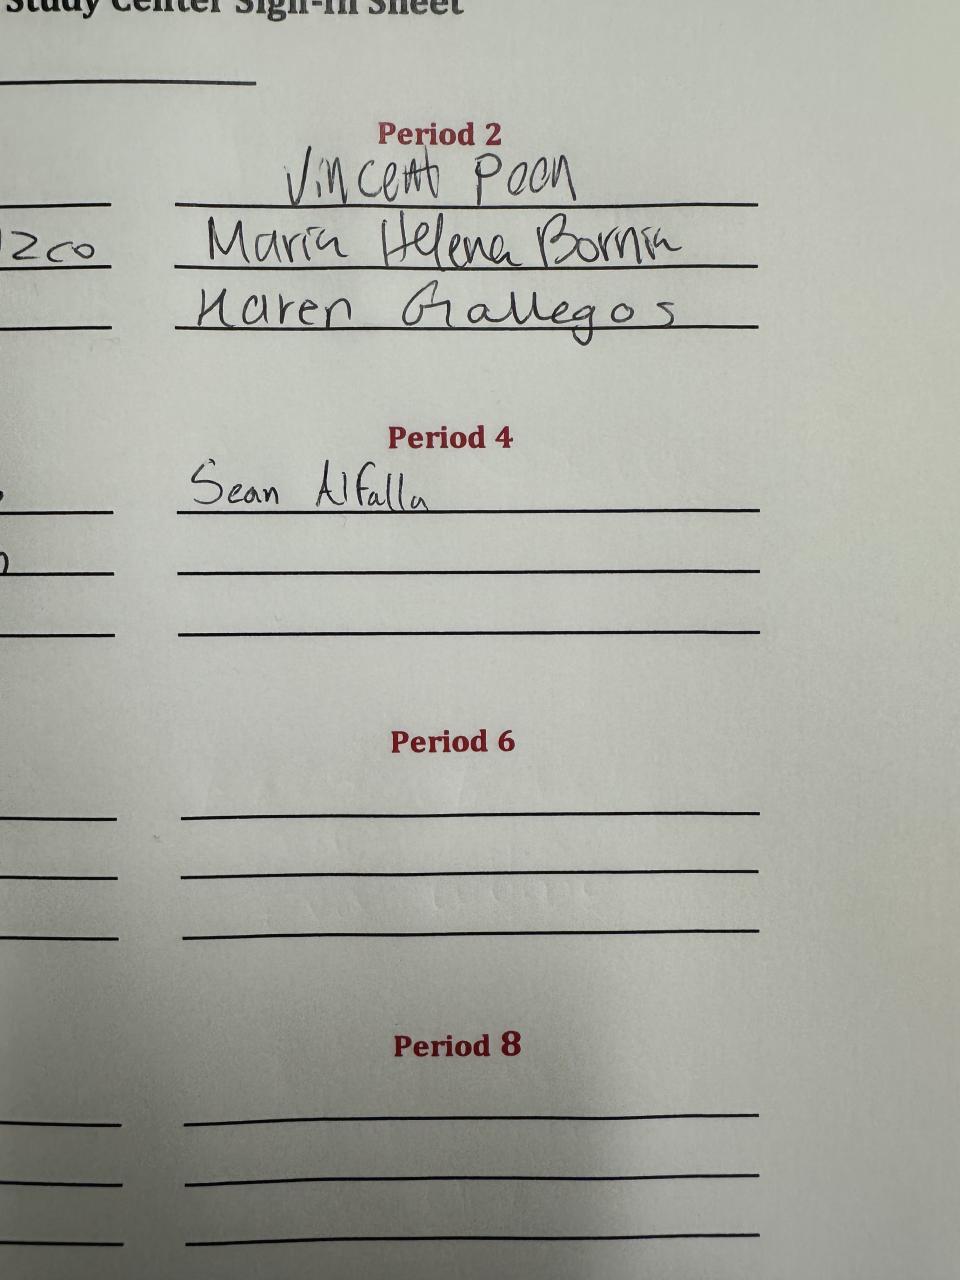 Study Center Sign-In Sheet
Period 2
Vincent Poon
Maria Helena Bornia
Karen Gallegos
Period 4
Sean Alfalla
Period 6
Period 8